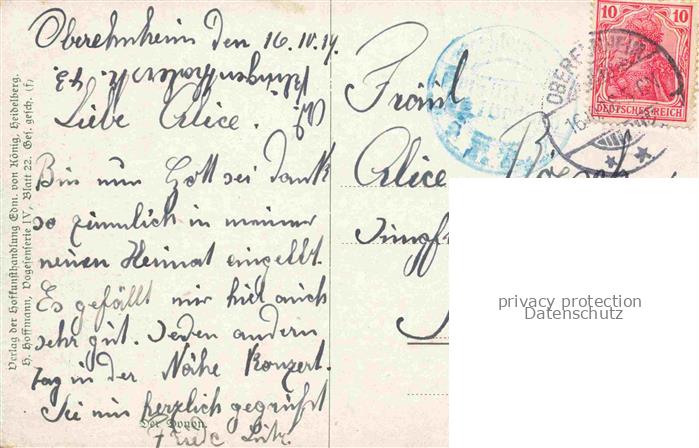 Verlag der Hofkunsthandlung Edm. von König, Heidelberg.
H. Hoffmann, Vogesenserie IV, Blatt 22. Ges. gesch. (f)
Oberehnheim den 16.IV.14
Liebe Alice.
Bin nun Gott sei dank
so ziemlich in meiner
neuen Heimat eingelbt.
Es gefällt mir hier auch
sehr gut. Jeden andern
Tag in der Nähe Konzert.
Sei nun herzlich gegrüßt
Der Donon.
Fräul
Alice
10 10
DEUTSCHES REICH
OBEREHNHEIM
privacy protection
Datenschutz